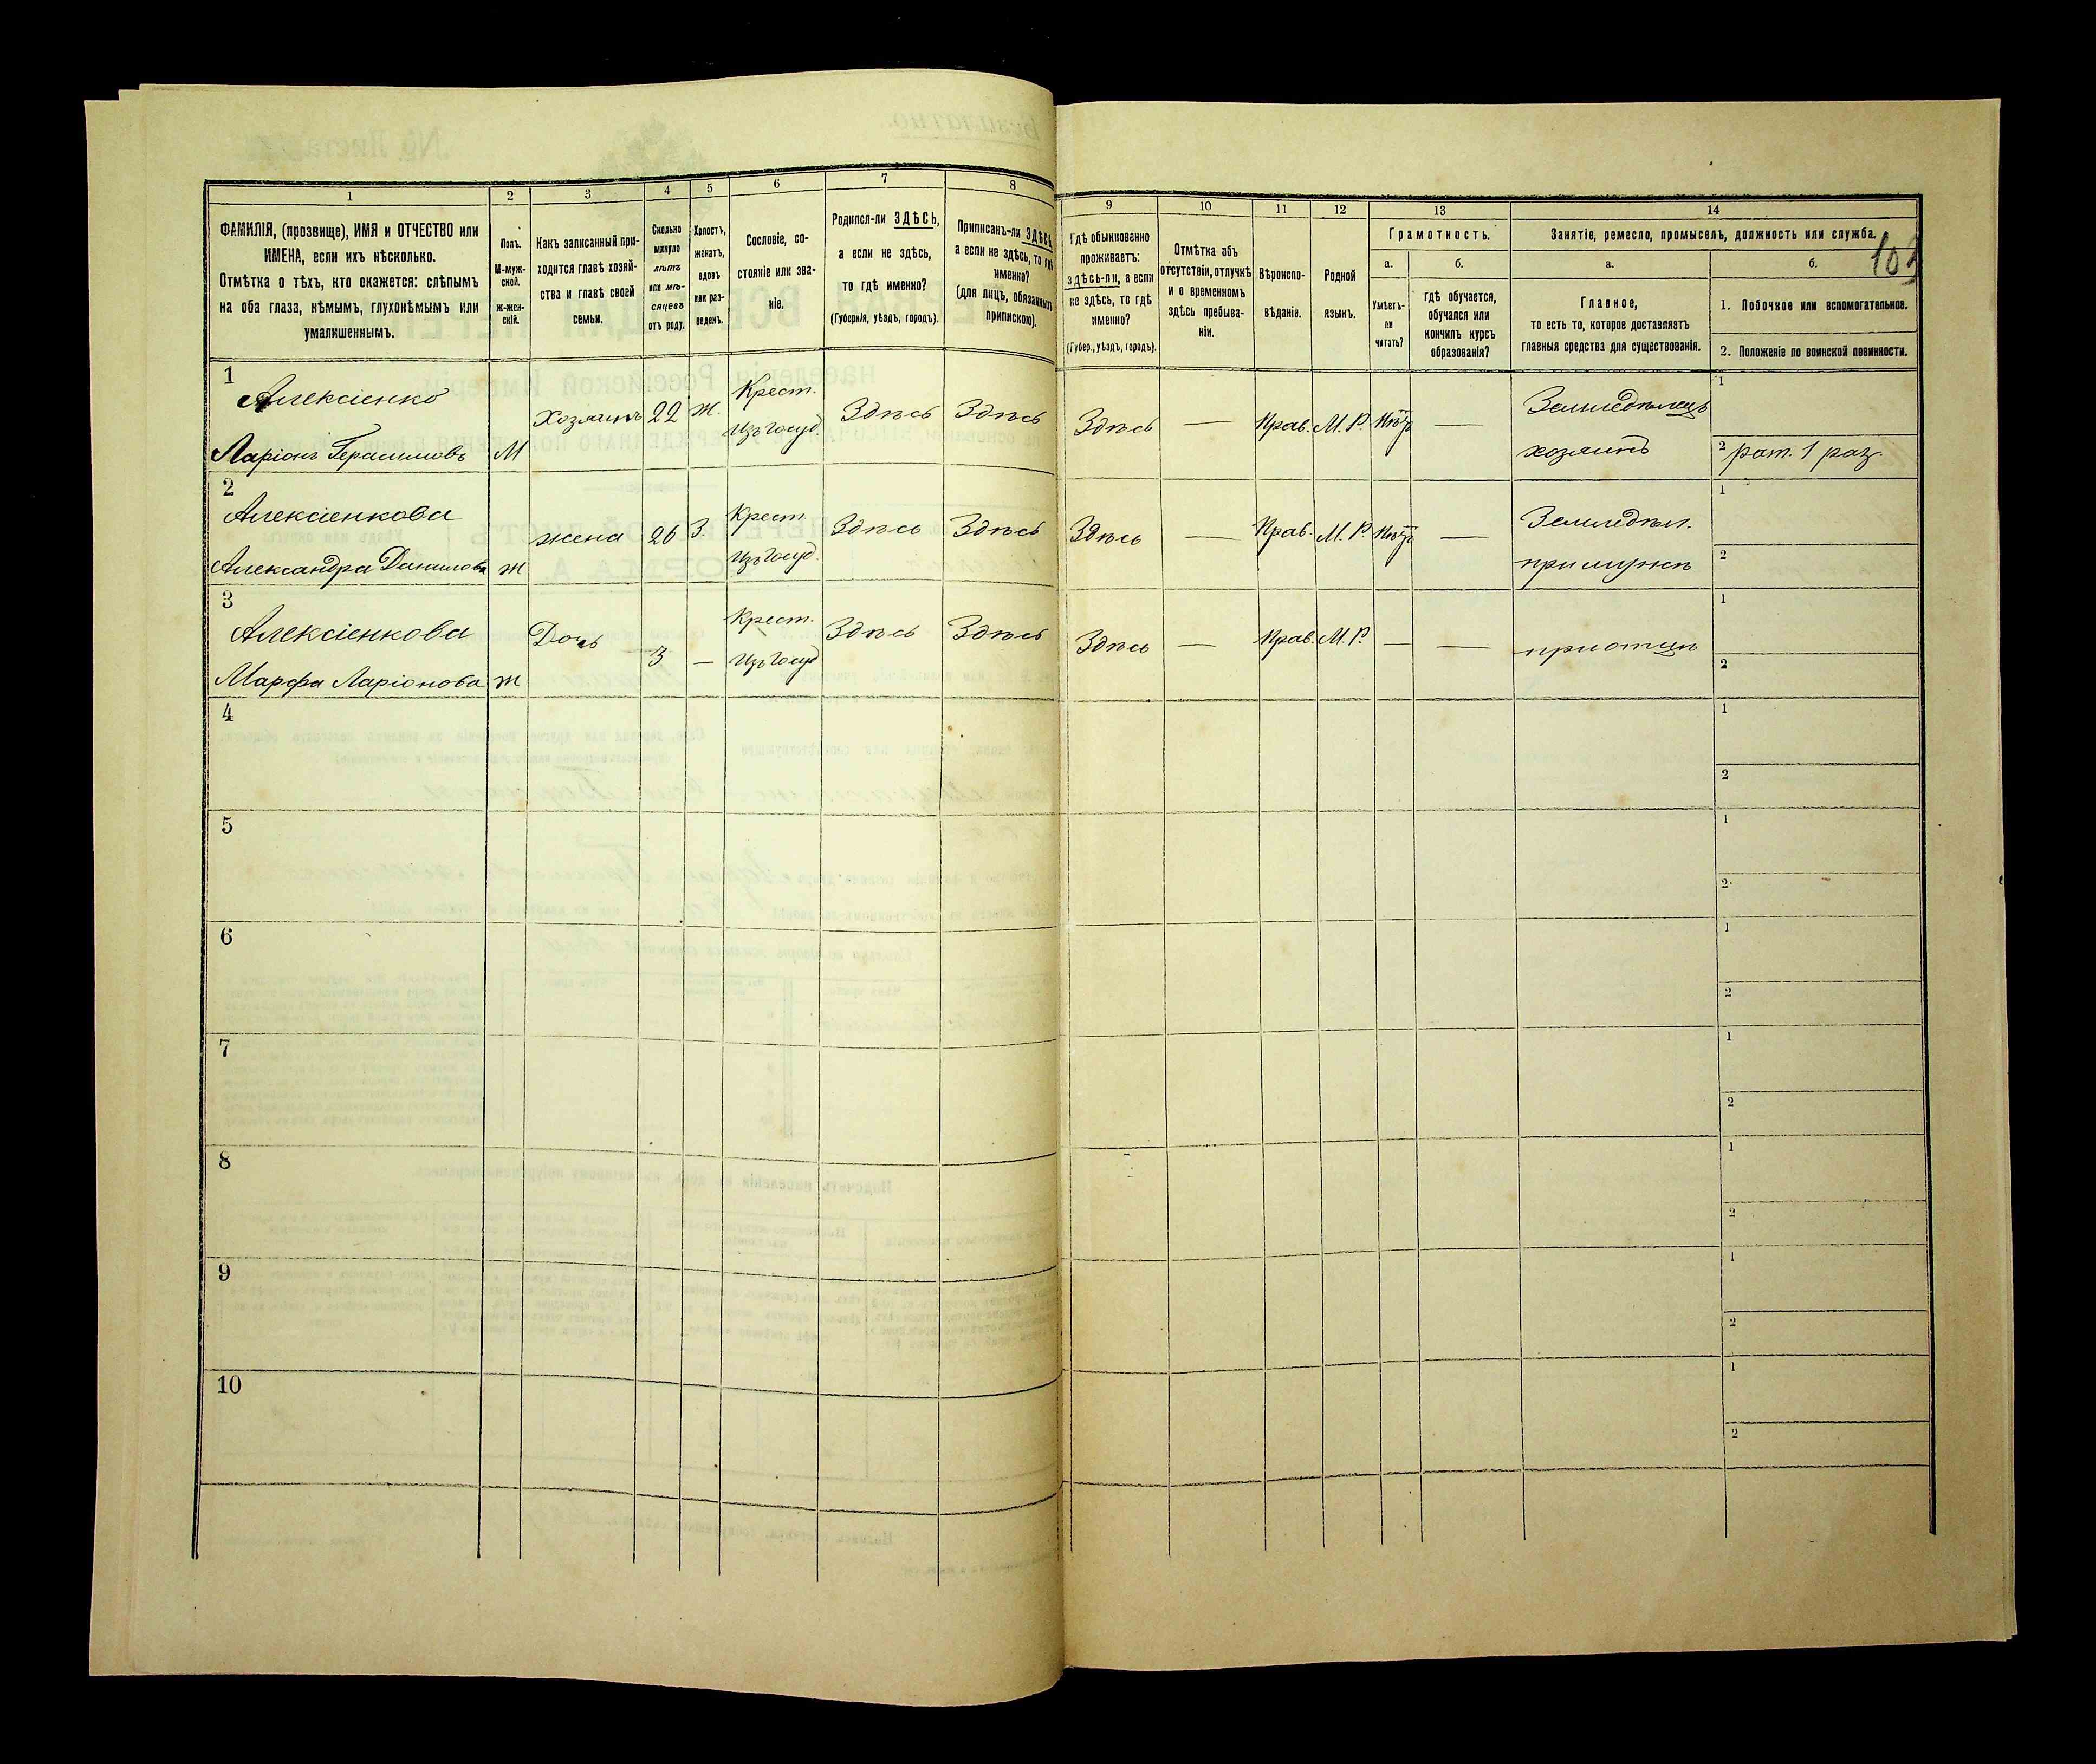 1 2 3 4 5 6 7 8 9 10 11 12 13 14
ФАМИЛІЯ, (прозвище), ИМЯ и ОТЧЕСТВО или
ИМЕНА, если ихъ нѣсколько.
Отмѣтка о тѣхъ, кто окажется: слѣпымъ
на оба глаза, нѣмымъ, глухонѣмымъ или
умалишеннымъ.
Полъ.
М-муж-
ской.
Ж-жен-
скій.
Какъ записанный при-
ходится главѣ хозяй-
ства и главѣ своей
семьи.
Сколько
минуло
лѣтъ
или мѣ-
сяцевъ
отъ роду.
Холостъ,
женатъ,
вдовъ
или раз-
веденъ.
Сословіе, со-
стояніе или зва-
ніе.
Родился-ли ЗДѢСЬ,
а если не здѣсь,
то гдѣ именно?
(Губернія, уѣздъ, городъ).
Приписанъ-ли ЗДѢСЬ,
а если не здѣсь, то гдѣ
именно?
(для лицъ, обязанныхъ
припискою).
Гдѣ обыкновенно
проживаетъ:
здѣсь-ли, а если
не здѣсь, то гдѣ
именно?
(Губер., уѣздъ, городъ).
Отмѣтка объ
отсутствіи, отлучкѣ
и о временномъ
здѣсь пребыва-
ніи.
Вѣроиспо-
вѣданіе.
Родной
языкъ.
Грамотность.
а.
Умѣетъ-
ли
читать?
б.
гдѣ обучается,
обучался или
кончилъ курсъ
образованія?
Занятіе, ремесло, промыселъ, должность или служба.
а.
Главное,
то есть то, которое доставляетъ
главныя средства для существованія.
б.
1. Побочное или вспомогательное.
2. Положеніе по воинской повинности.
1
Алексіенко Хозяинъ 22 Ж. Крест. Здѣсь Здѣсь Здѣсь — Прав. М.Р. — Земледѣлецъ 1
Ларіонъ Герасимовъ М Изъ Госуд. хозяинъ 2 рат. 1 раз.
2
Алексіенкова жена 26 З. Крест. Здѣсь Здѣсь Здѣсь — Прав. М.Р. — Земледѣл. 1
Александра Данилова Ж Изъ Госуд. при мужѣ 2
3
Алексіенкова Дочь 3 — Крест. Здѣсь Здѣсь Здѣсь — Прав. М.Р. — — при отцѣ 1
Марфа Ларіонова Ж Изъ Госуд 2
4 1
2
5 1
2
6 1
2
7 1
2
8 1
2
9 1
2
10 1
2